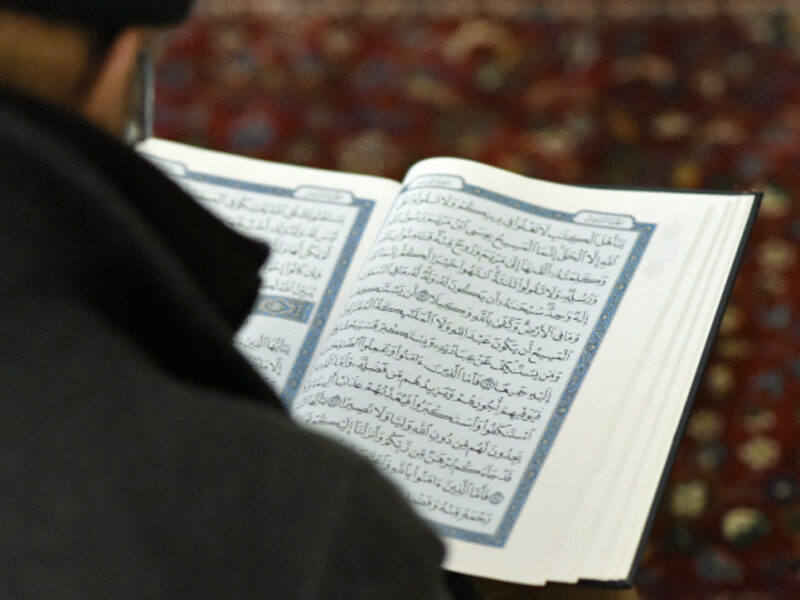 يَٰٓأَهْلَ ٱلْكِتَٰبِ لَا تَغْلُوا۟ فِى دِينِكُمْ وَلَا تَقُولُوا۟ عَلَى
ٱللَّهِ إِلَّا ٱلْحَقَّ إِنَّمَا ٱلْمَسِيحُ عِيسَى ٱبْنُ مَرْيَمَ رَسُولُ
وَكَلِمَتُهُۥٓ أَلْقَىٰهَآ إِلَىٰ مَرْيَمَ وَرُوحٌ مِّنْهُ فَـَٔامِنُوا۟
وَرُسُلِهِۦ وَلَا تَقُولُوا۟ ثَلَٰثَةٌ ٱنتَهُوا۟ خَيْرًا لَّكُمْ إِنَّمَا
إِلَٰهٌ وَٰحِدٌ سُبْحَٰنَهُۥٓ أَن يَكُونَ لَهُۥ وَلَدٌ لَّهُۥ مَا فِى
وَمَا فِى ٱلْأَرْضِ وَكَفَىٰ بِٱللَّهِ وَكِيلًا لَّن يَسْتَنكِفَ
ٱلْمَسِيحُ أَن يَكُونَ عَبْدًا لِّلَّهِ وَلَا ٱلْمَلَٰٓئِكَةُ ٱلْمُقَرَّبُونَ
وَمَن يَسْتَنكِفْ عَنْ عِبَادَتِهِۦ وَيَسْتَكْبِرْ فَسَيَحْشُرُهُمْ
إِلَيْهِ جَمِيعًا فَأَمَّا ٱلَّذِينَ ءَامَنُوا۟ وَعَمِلُوا۟
فَيُوَفِّيهِمْ أُجُورَهُمْ وَيَزِيدُهُم مِّن فَضْلِهِۦ وَأَمَّا
ٱسْتَنكَفُوا۟ وَٱسْتَكْبَرُوا۟ فَيُعَذِّبُهُمْ عَذَابًا أَلِيمًا وَلَا
يَجِدُونَ لَهُم مِّن دُونِ ٱللَّهِ وَلِيًّا وَلَا نَصِيرًا يَٰٓأَيُّهَا
قَدْ جَآءَكُم بُرْهَٰنٌ مِّن رَّبِّكُمْ وَأَنزَلْنَآ إِلَيْكُمْ
فَأَمَّا ٱلَّذِينَ ءَامَنُوا۟ بِٱللَّهِ
رَحْمَةٍ مِّنْهُ وَفَضْلٍ
يَسْتَفْتُونَكَ قُلِ ٱللَّهُ يُفْتِيكُمْ فِى
لَيْسَ لَهُۥ وَلَدٌ وَلَهُۥٓ
لَمْ يَكُن لَّهَا
كَانُوٓا۟
يُبَيِّنُ ٱللَّهُ
يَٰٓأَيُّهَا ٱلَّذِينَ
إِلَّا مَا